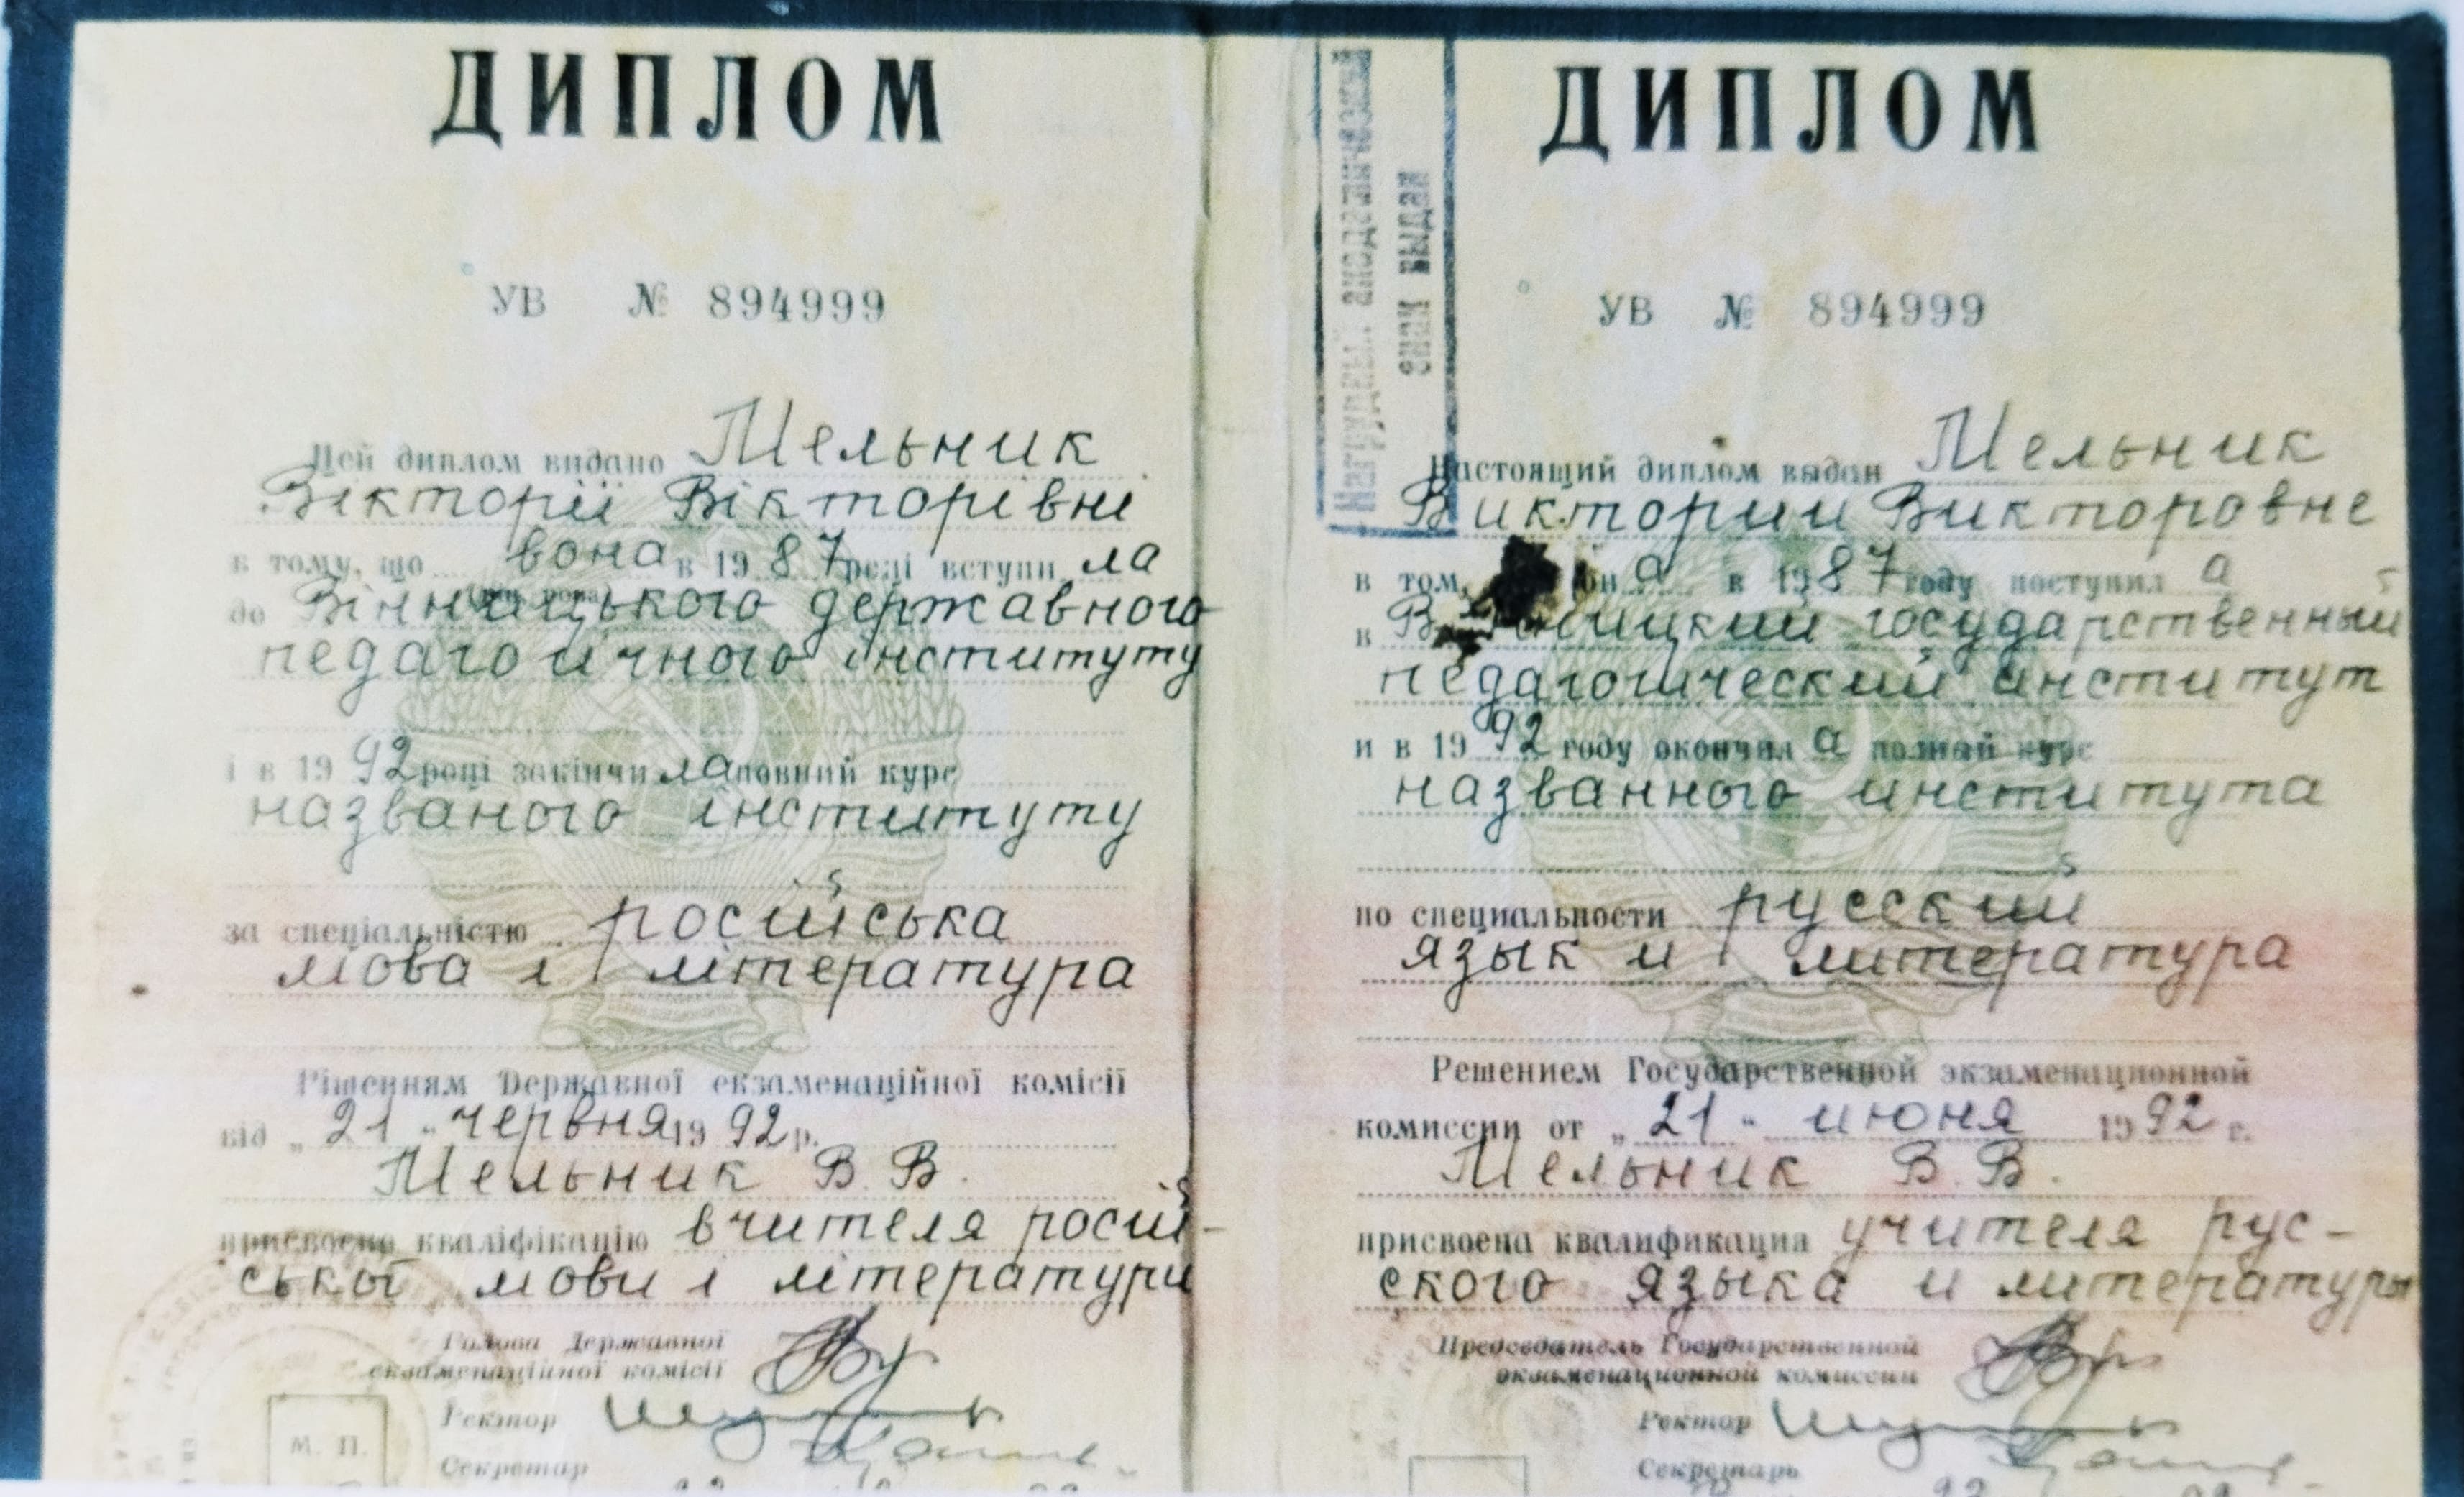 ДИПЛОМ
УВ № 894999
Цей диплом видано Мельник
Вікторії Вікторівні
в тому, що вона в 19 87 році вступи ла
до Вінницького державного
педагогічного інституту
і в 19 92 році закінчи ла повний курс
названого інституту
за спеціальністю російська
мова і література
Рішенням Державної екзаменаційної комісії
від „21" червня 19 92 р.
Мельник В. В.
присвоєно кваліфікацію вчителя росій-
ської мови і літератури
Голова Державної
екзаменаційної комісії
Ректор
М. П.
Секретар
ДИПЛОМ
Нагрудный академический
знак выдан
УВ № 894999
Настоящий диплом выдан Мельник
Виктории Викторовне
в том, она в 19 87 году поступил а
в Винницкий государственный
педагогический институт
и в 19 92 году окончил а полный курс
названного института
по специальности русский
язык и литература
Решением Государственной экзаменационной
комиссии от „21" июня 19 92 г.
Мельник В. В.
присвоена квалификация учителя рус-
ского языка и литературы
Председатель Государственной
экзаменационной комиссии
Ректор
Секретарь